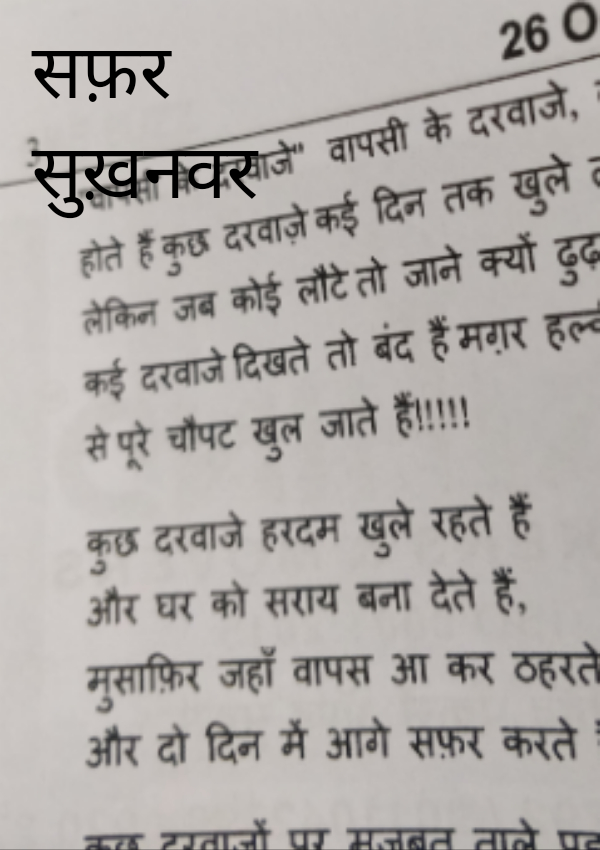 26 O
सफ़र
सुख़नवर
"वापसी के दरवाजे" वापसी के दरवाजे,
होते हैं कुछ दरवाज़े कई दिन तक खुले
लेकिन जब कोई लौटे तो जाने क्यों
कई दरवाजे दिखते तो बंद हैं मग़र
से पूरे चौपट खुल जाते हैं!!!!!
कुछ दरवाजे हरदम खुले रहते हैं
और घर को सराय बना देते हैं,
मुसाफ़िर जहाँ वापस आ कर ठहरते
और दो दिन में आगे सफ़र करते
कुछ दरवाजों पर मजबूत ताले